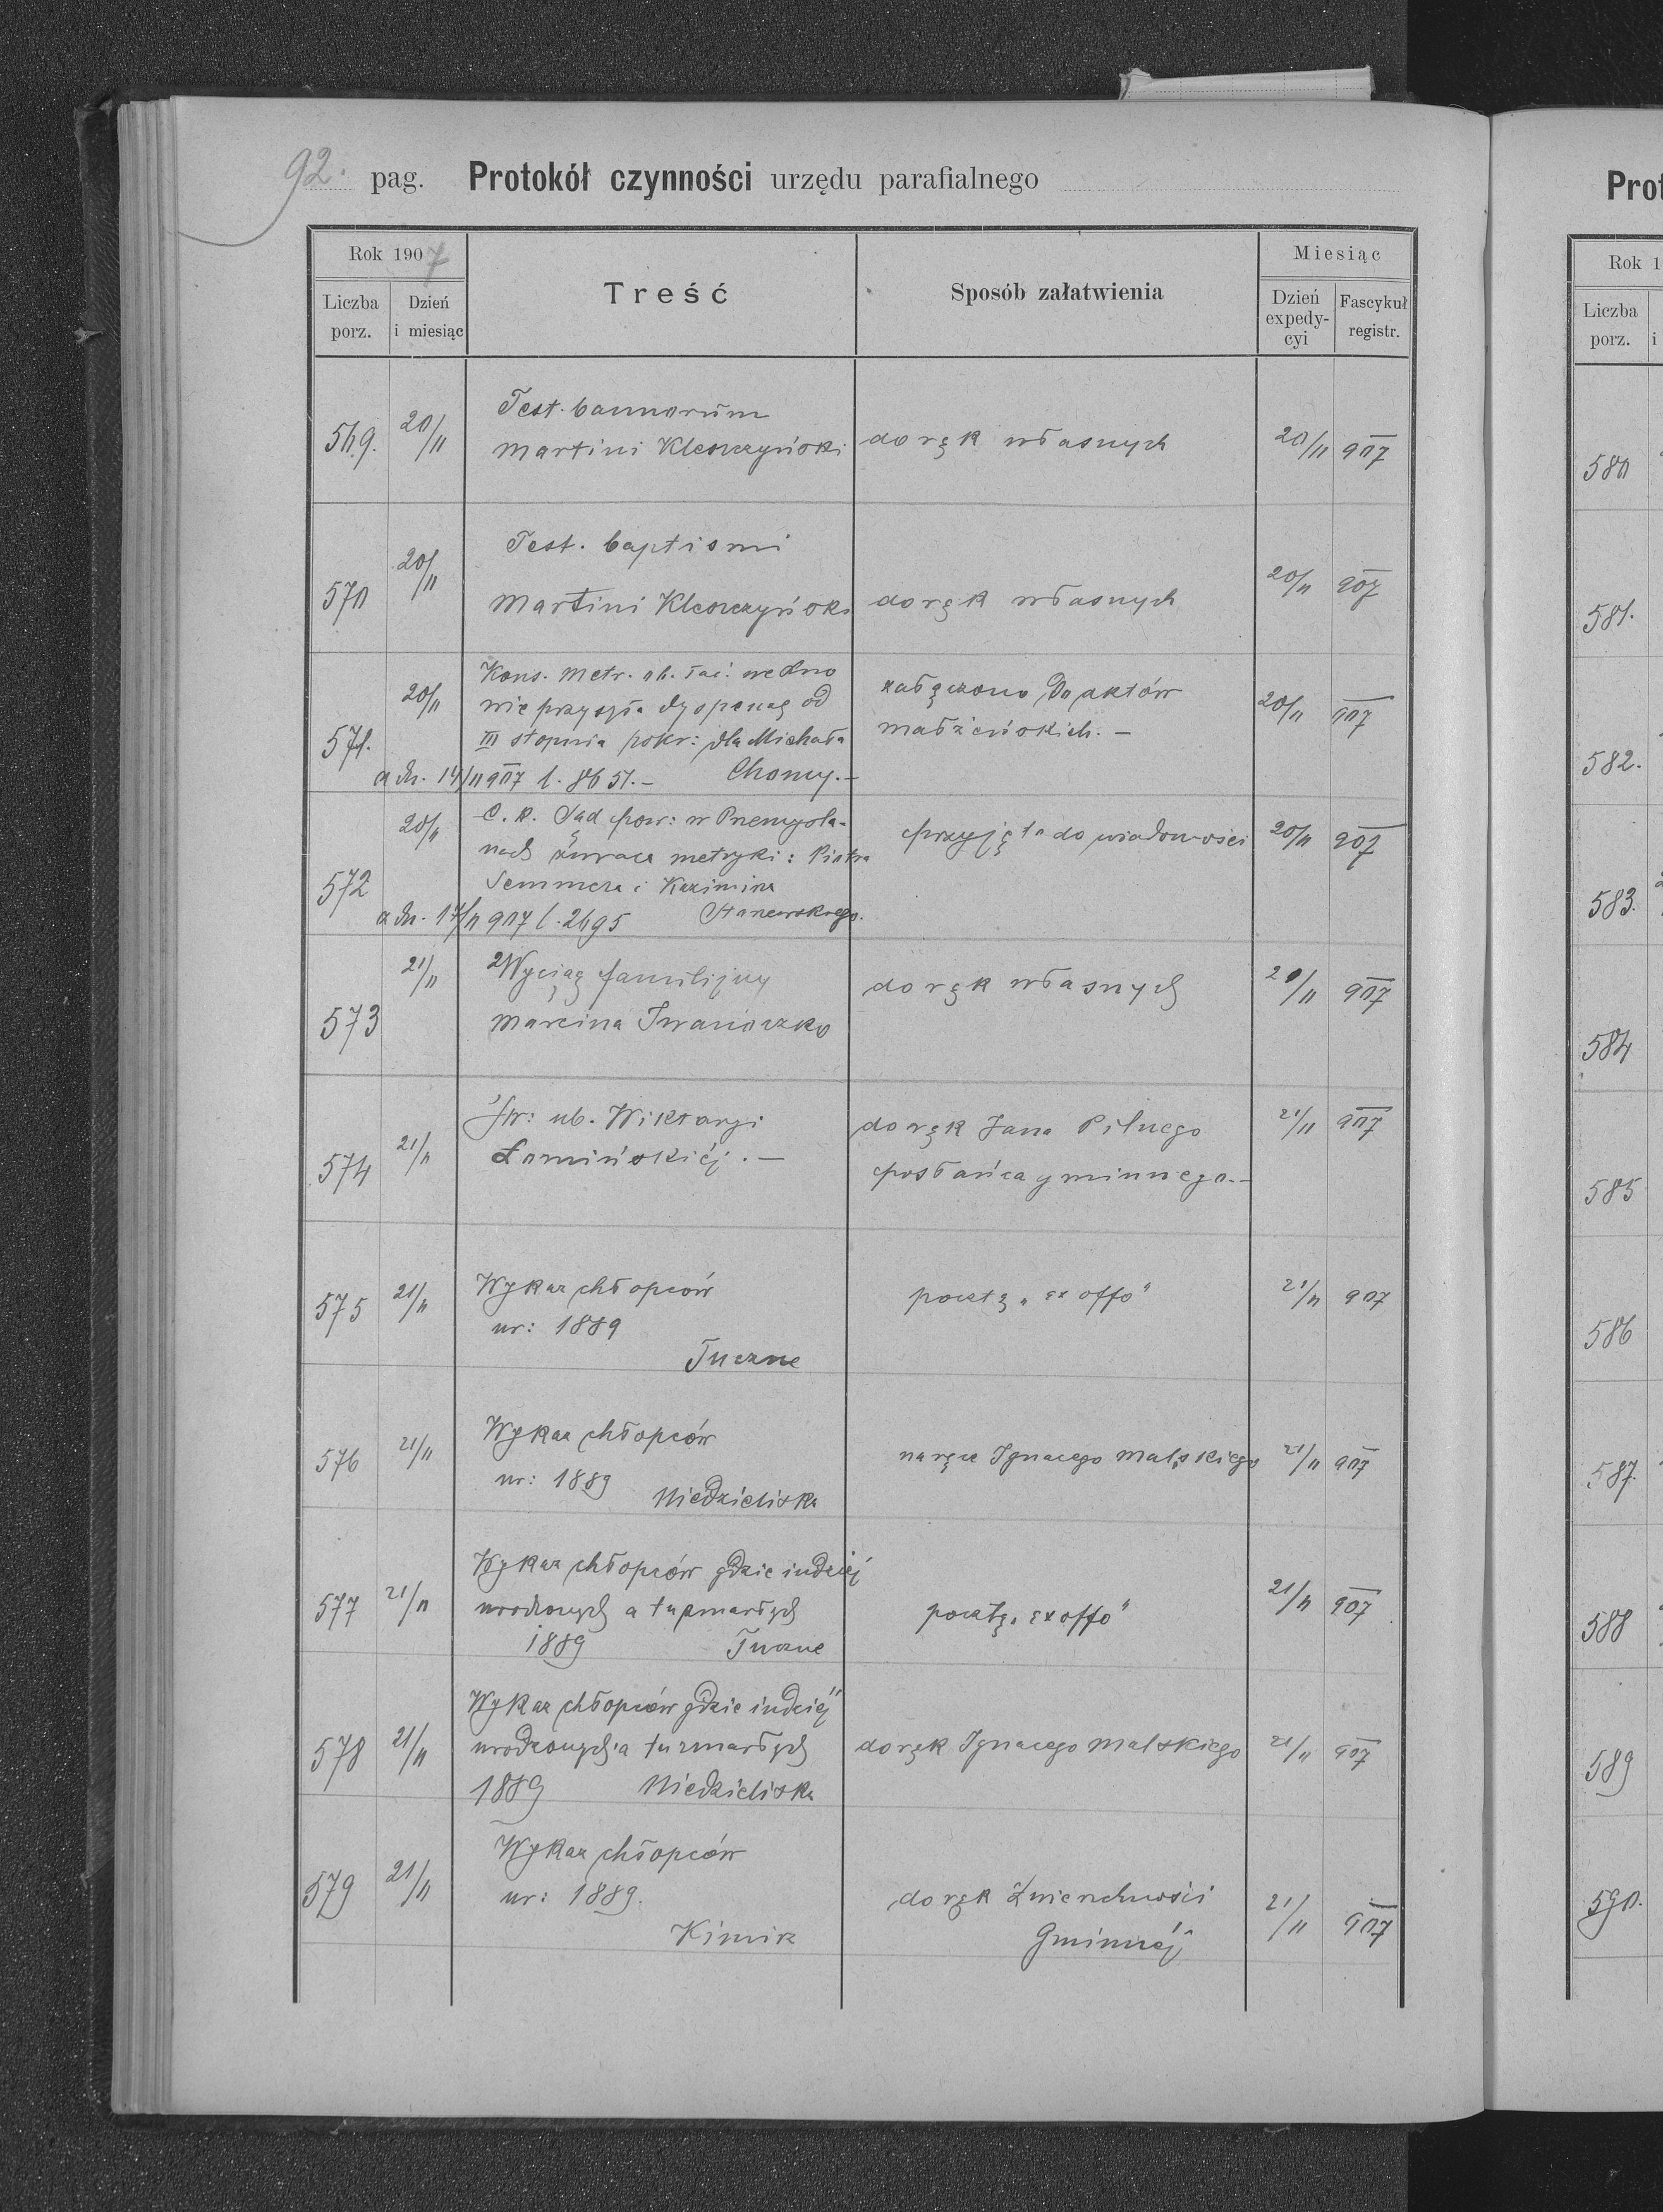 92. pag. Protokół czynności urzędu parafialnego
Rok 1907
Liczba porz.
Dzień i miesiąc
Treść
Sposób załatwienia
Miesiąc
Dzień expedy-cyi
Fascykuł registr.
569. 20/11 Test. bannorum
Martini Kleszczyński do rąk własnych 20/11 907
570 20/11 Test. baptismi
Martini Kleszczyński do rąk własnych 20/11 907
571. 20/11 Kons. Metr. ob. łać. we Lwo
wie przysyła dyspensę od
III stopnia pokr: dla Michała
a dn. 14/11 907 l. 8651.– Chomy.–
załączono do aktów
małżeńskich. – 20/11 907
572 20/11 C. k. Sąd pow: w Przemyśla-
nach zwraca metryki: Piotra
Semmera i Kazimirza
a dn. 17/11 907 l. 2695
przyjęto do wiadomości 20/11 907
573 21/11 Wyciąg familijny
Marcina Iwanioczko
do rąk własnych 21/11 907
574 21/11 św: ub. Wiktoryi
Łomińskiéj. –
do rąk Jana Pilnego
posłańca gminnego. – 21/11 907
575 21/11 Wykaz chłopców
ur: 1889
Tuczne
pocztą „ex offo" 21/11 907
576 21/11 Wykaz chłopców
ur: 1889
Niedzieliska
na ręce Ignacego Malskiego 21/11 907
577 21/11 Wykaz chłopców gdzie indziéj
urodzonych a tu zmarłych
1889 Tuczne
pocztą „ex offo" 21/11 907
578 21/11 Wykaz chłopców gdzie indziéj
urodzonych a tu zmarłych
1889 Niedzieliska
do rąk Ignacego Malskiego 21/11 907
579 21/11 Wykaz chłopców
ur: 1889.
Kimirz
do rąk Zwierzchności
Gminnéj 21/11 907
Prot
Rok 1
Liczba porz.
i
580
581.
582.
583.
584
585
586
587.
588
589
590.